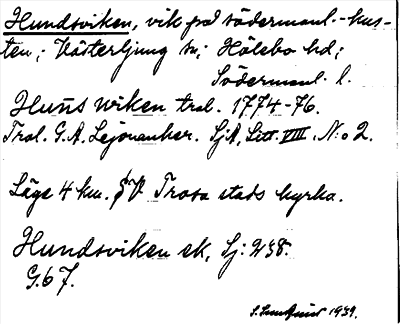 Hundsviken, vik på södermanl.-kus-
ten; Västerljung sn; Hölebo hd;
Södermanl. l.
Huns wiken tral. 1774-76.
Tral. G.A. Lejonanker. SjA, Litt. VIII. N:o 2.
Läge 4 km. SV Trosa stads kyrka.
Hundsviken ek, Sj: 238.
G.67.
1939.